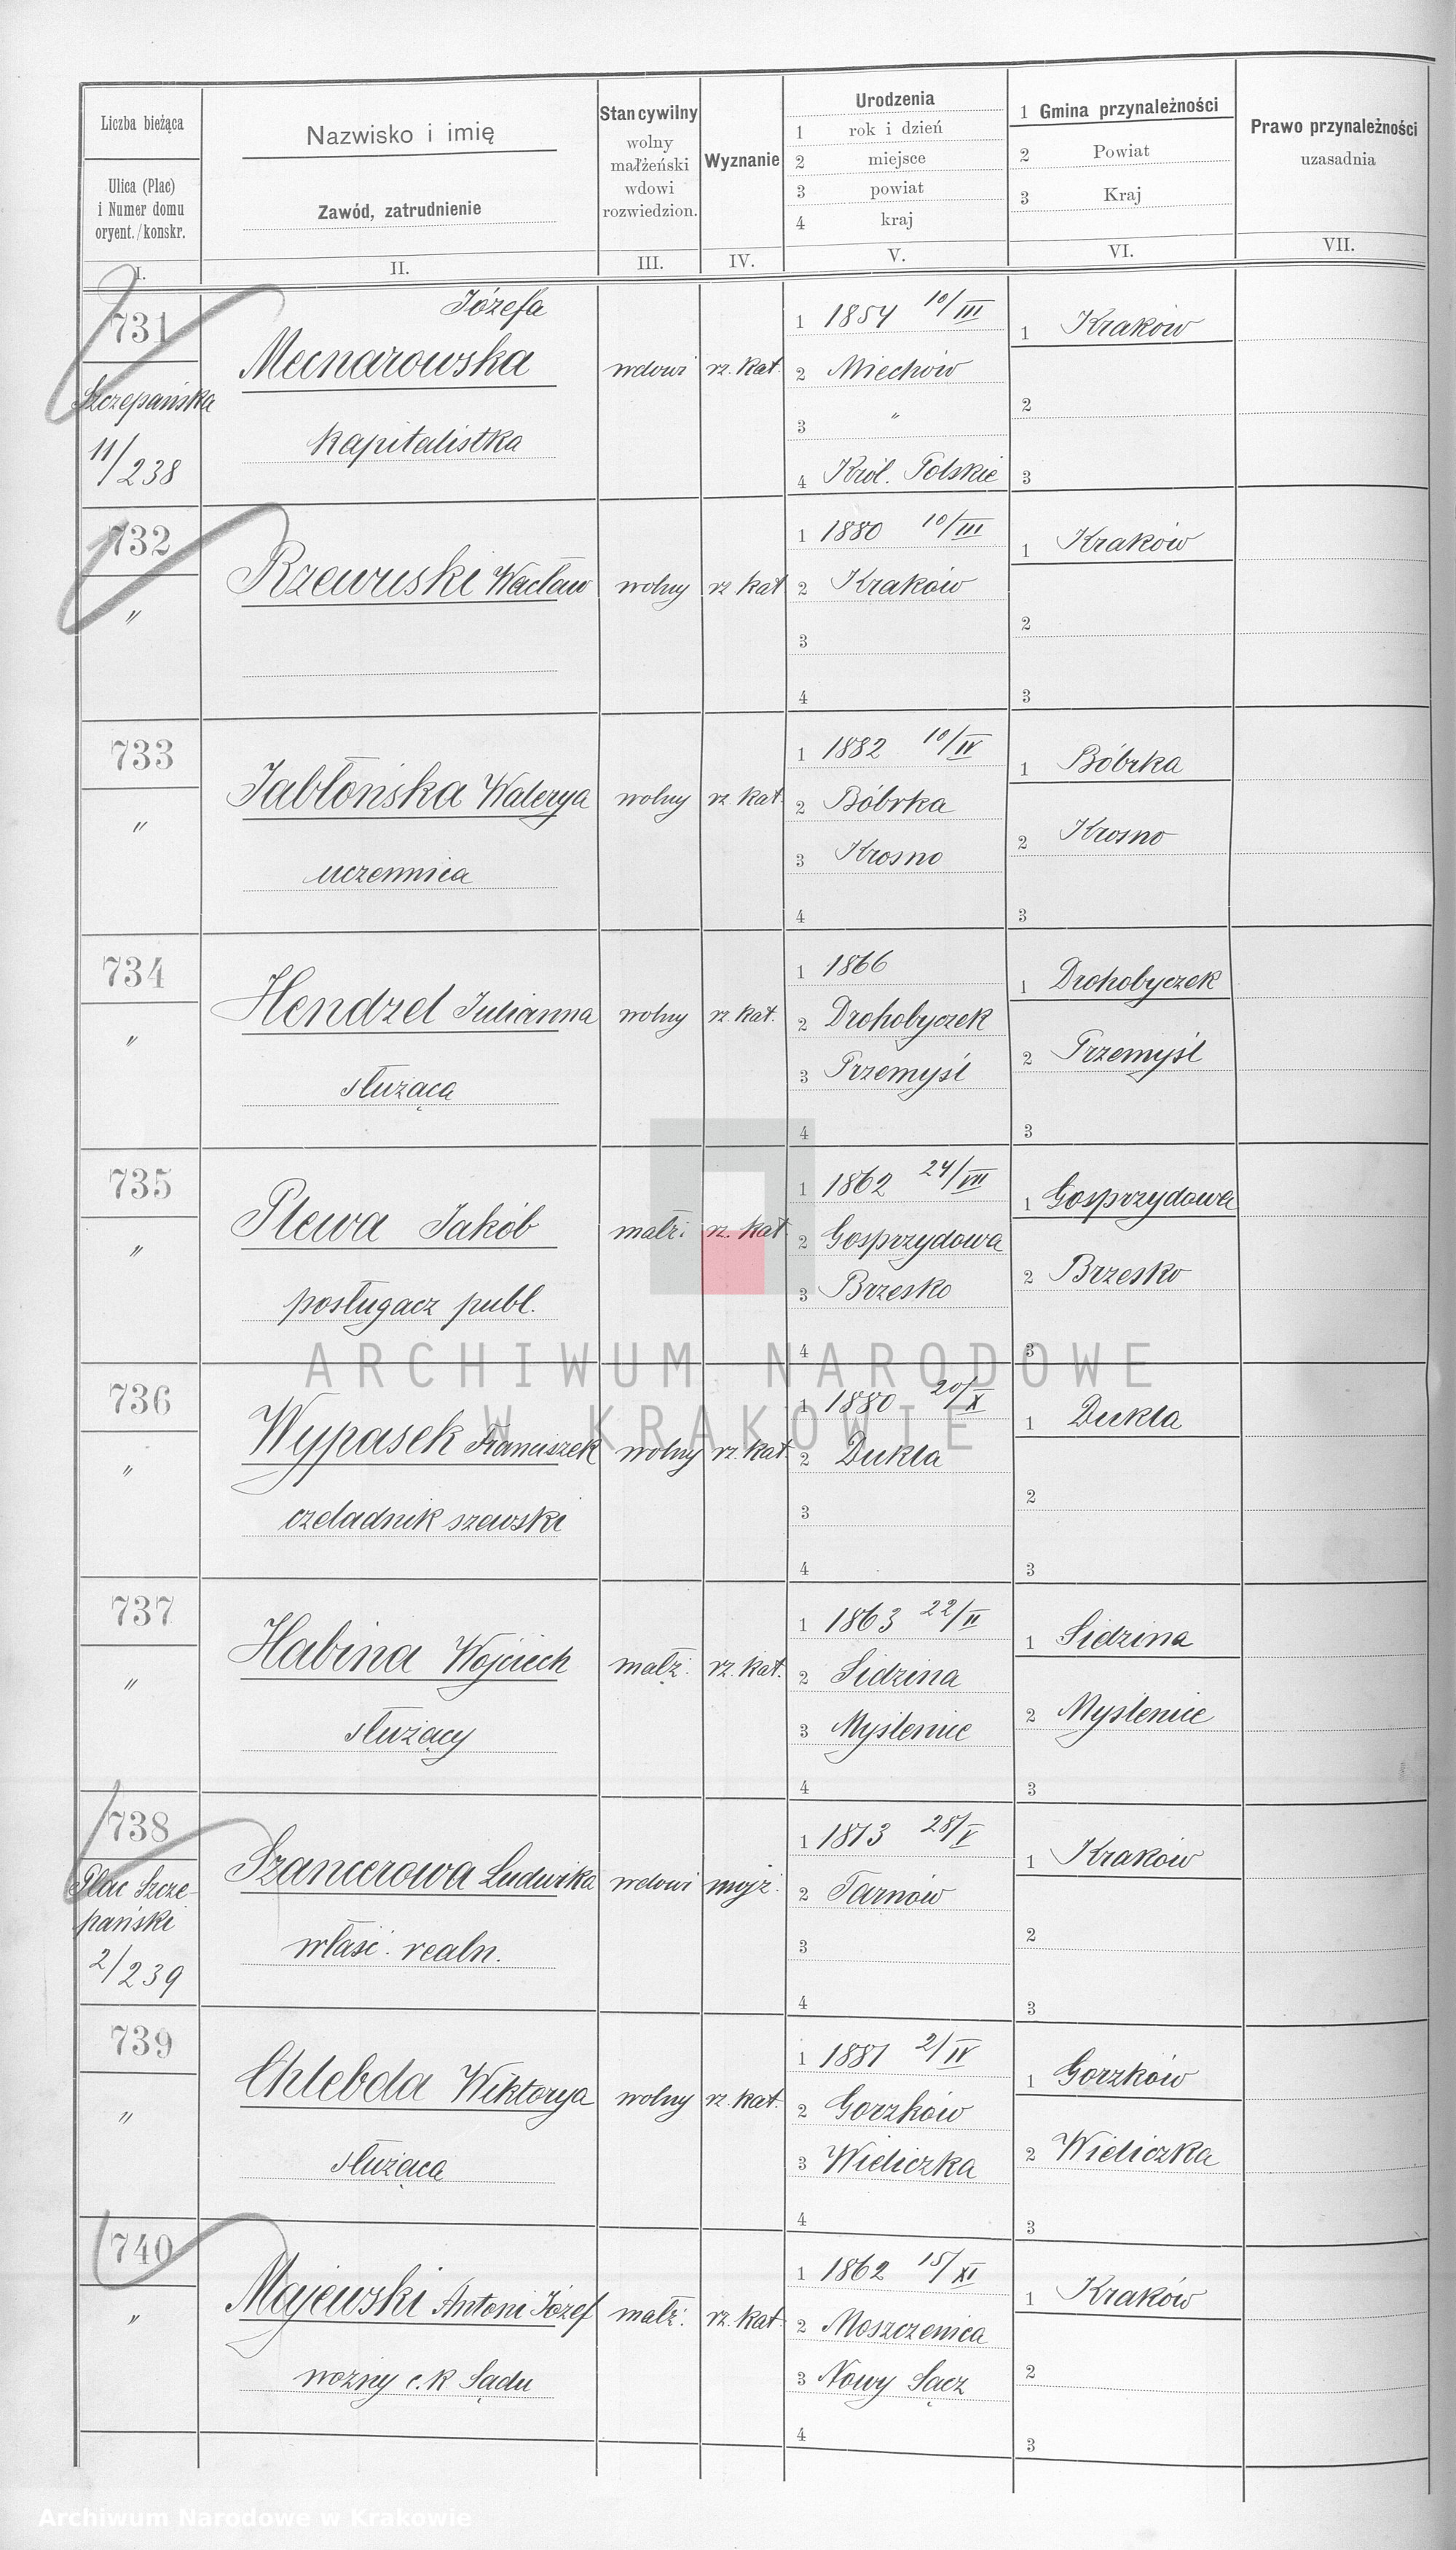 Liczba bieżąca
Ulica (Plac)
i Numer domu
oryent./konskr.
I.
Nazwisko i imię
Zawód, zatrudnienie
II.
Stan cywilny
wolny
małżeński
wdowi
rozwiedzion.
III.
Wyznanie
IV.
Urodzenia
1 rok i dzień
2 miejsce
3 powiat
4 kraj
V.
1 Gmina przynależności
2 Powiat
3 Kraj
VI.
Prawo przynależności
uzasadnia
VII.
731
Szczepańska
11/238
Józefa
kapitalistka
wdowi
rz. kat.
1 1854 10/III
2 Miechów
3 "
4 Król. Polskie
1 Kraków
2
3
732
"
Rzewuski Wacław
wolny
rz kat
1 1880 10/III
2 Kraków
3
4
1 Kraków
2
3
733
"
Jabłońska Walerya
uczennica
wolny
rz. kat.
1 1882 10/IV
2 Bóbrka
3 Krosno
4
1 Bóbrka
2 Krosno
3
734
"
Hendzel Julianna
służąca
wolny
rz. kat.
1 1866
2 Drohobyczek
3 Przemyśl
4
1 Drohobyczek
2 Przemyśl
3
735
"
Plewa Jakób
posługacz publ.
małż:
rz. kat.
1 1862 24/VII
2 Gosprzydowa
3 Brzesko
4
1 Gosprzydowa
2 Brzesko
3
736
"
Wypasek Franciszek
czeladnik szewski
wolny
rz. kat.
1 1880 20/X
2 Dukla
3
4
1 Dukla
2
3
737
"
Habina Wojciech
służący
małż:
rz. kat.
1 1863 22/II
2 Sidzina
3 Myślenice
4
1 Sidzina
2 Myślenice
3
738
Plac Szcze-
pański
2/239
Szancerowa Ludwika
właśc. realn.
wdowi
mojż.
1 1813 28/V
2 Tarnów
3
4
1 Kraków
2
3
739
"
Chlebda Wiktorya
służąca
wolny
rz. kat.
1 1881 2/IV
2 Gorzków
3 Wieliczka
4
1 Gorzków
2 Wieliczka
3
740
"
Majewski Antoni Józef
woźny c.k Sądu
małż:
rz. kat.
1 1862 15/XI
2 Moszczenica
3 Nowy Sącz
4
1 Kraków
2
3
ARCHIWUM NARODOWE
W KRAKOWIE
Archiwum Narodowe w Krakowie